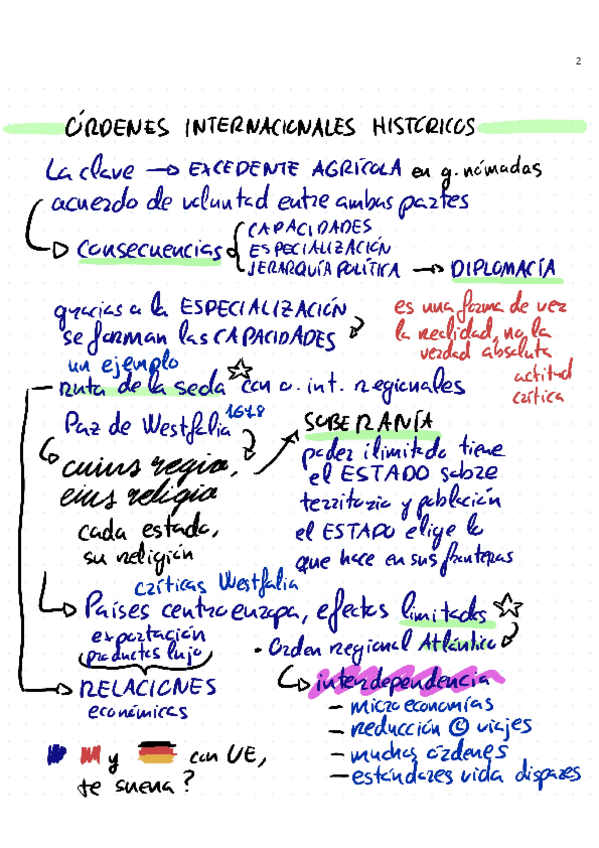 2
ÓRDENES INTERNACIONALES HISTÓRICOS
La clave → EXCEDENTE AGRÍCOLA en g. nómadas
acuerdo de voluntad entre ambas partes
→ consecuencias
CAPACIDADES
ESPECIALIZACIÓN
JERARQUÍA POLÍTICA → DIPLOMACÍA
gracias a la ESPECIALIZACIÓN
se forman las CAPACIDADES
es una forma de ver
la realidad, no la
verdad absoluta
actitud
crítica
un ejemplo
ruta de la seda ☆ con o. int. regionales
Paz de Westfalia 1648
cuius regio,
eius religio
cada estado,
su religión
SOBERANÍA
poder ilimitado tiene
el ESTADO sobre
territorio y población
el ESTADO elige lo
que hace en sus fronteras
críticas Westfalia
→ Países centroeuropa, efectos limitados ☆
exportación
productos lujo
→ RELACIONES
económicas
• Orden regional Atlántico
→ interdependencia
– microeconomías
– reducción © viajes
– muchos órdenes
– estándares vida dispares
y con UE,
te suena?